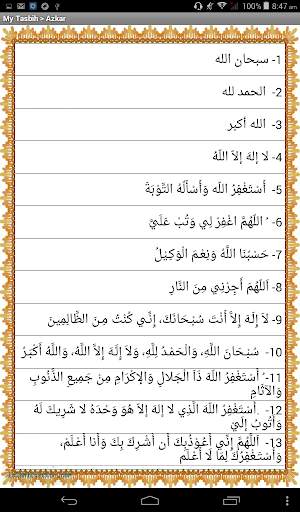 100% 8:47 am
My Tasbih > Azkar
1- سبحان الله
2- الحمد لله
3- الله أكبر
4- لا إله إلاّ اللّه
5- أَسْتَغْفِرُ اللهَ وَأَسْأَلُهُ التَّوْبَةَ
6- ُ اَللَّهُمَّ اغْفِرْ لِي وَتُبْ عَلَيَّ
7- حَسْبُنَا اللَّهُ وَنِعْمَ الْوَكِيْلُ
8- اَللَّهُمَّ أَجِرْنِي مِنَ النَّارِ
9- لاَ إِلَهَ إِلاَّ أَنْتَ سُبْحَانَكَ، إِنَّي كُنْتُ مِنَ الظَّالِمِينَ
10- سُبْحَانَ اللَّهِ، وَالْحَمْدُ لِلَّهِ، وَلاَ إِلَهَ إِلاَّ اللَّهُ، وَاللَّهُ أَكْبَرُ
11- ُ أَسْتَغْفِرُ اللَّهَ ذَاَ الْجَلالِ وَالإِكْرَامِ مِنْ جَمِيعِ الذُّنُوبِ
وَالآثَامِ
12- .أَسْتَغْفِرُ اللهَ الَّذِي لا إِلَهَ إِلاَّ هُوَ وَحْدَهُ لا شَرِيكَ لَهُ
وَأَتُوبُ إِلَيْهِ
13- اَللَّهُمَّ إِنِّي أَعُوْذُبِكَ أَنْ أُشْرِكَ بِكَ وَأَنا أَعْلَمُ،
وَأَسْتَغْفِرُكَ لِمَا لَا أَعْلَمُ